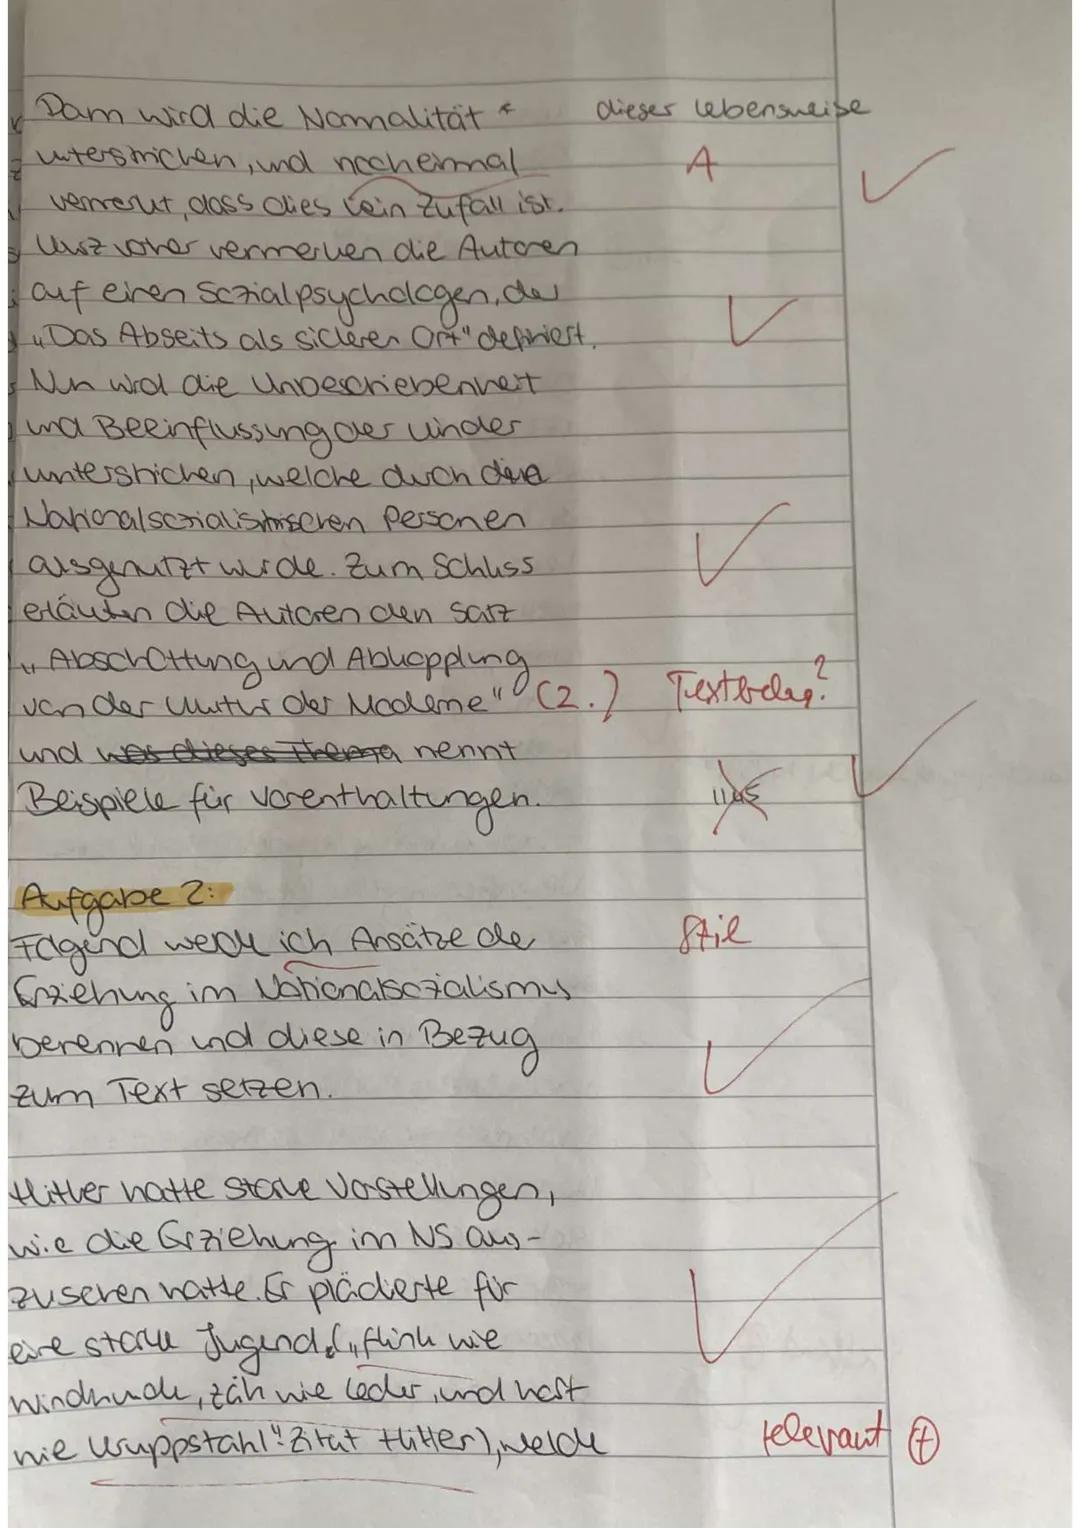 Dam wird die Normalität * dieser Lebensweise
unterstrichen, und nocheinmal A
vermerkt, dass dies kein Zufall ist.
Kurz vorher vermerken die Autoren
auf einen Sozialpsychologen, der
„Das Abseits als sicheren Ort" definiert.
Nun wird die Unbeschriebenheit
und Beeinflussung der Kinder
unterstrichen, welche durch die
Nationalsozialistischen Personen
ausgenutzt wurde. Zum Schluss
erläutern die Autoren den Satz
„Abschottung und Abkopplung
von der Kultur der Moderne" (Z. ) Textbeleg?
und was dieses Thema nennt
Beispiele für Vorenthaltungen.
1145
Aufgabe 2:
Folgend werde ich Ansätze der Stil
Erziehung im Nationalsozialismus
benennen und diese in Bezug
zum Text setzen.
Hitler hatte starke Vorstellungen,
wie die Erziehung im NS aus-
zusehen hatte. Er plädierte für
eine starke Jugend („flink wie
Windhunde, zäh wie Leder, und hart
wie Kruppstahl" Zitat Hitler), welche relevant +